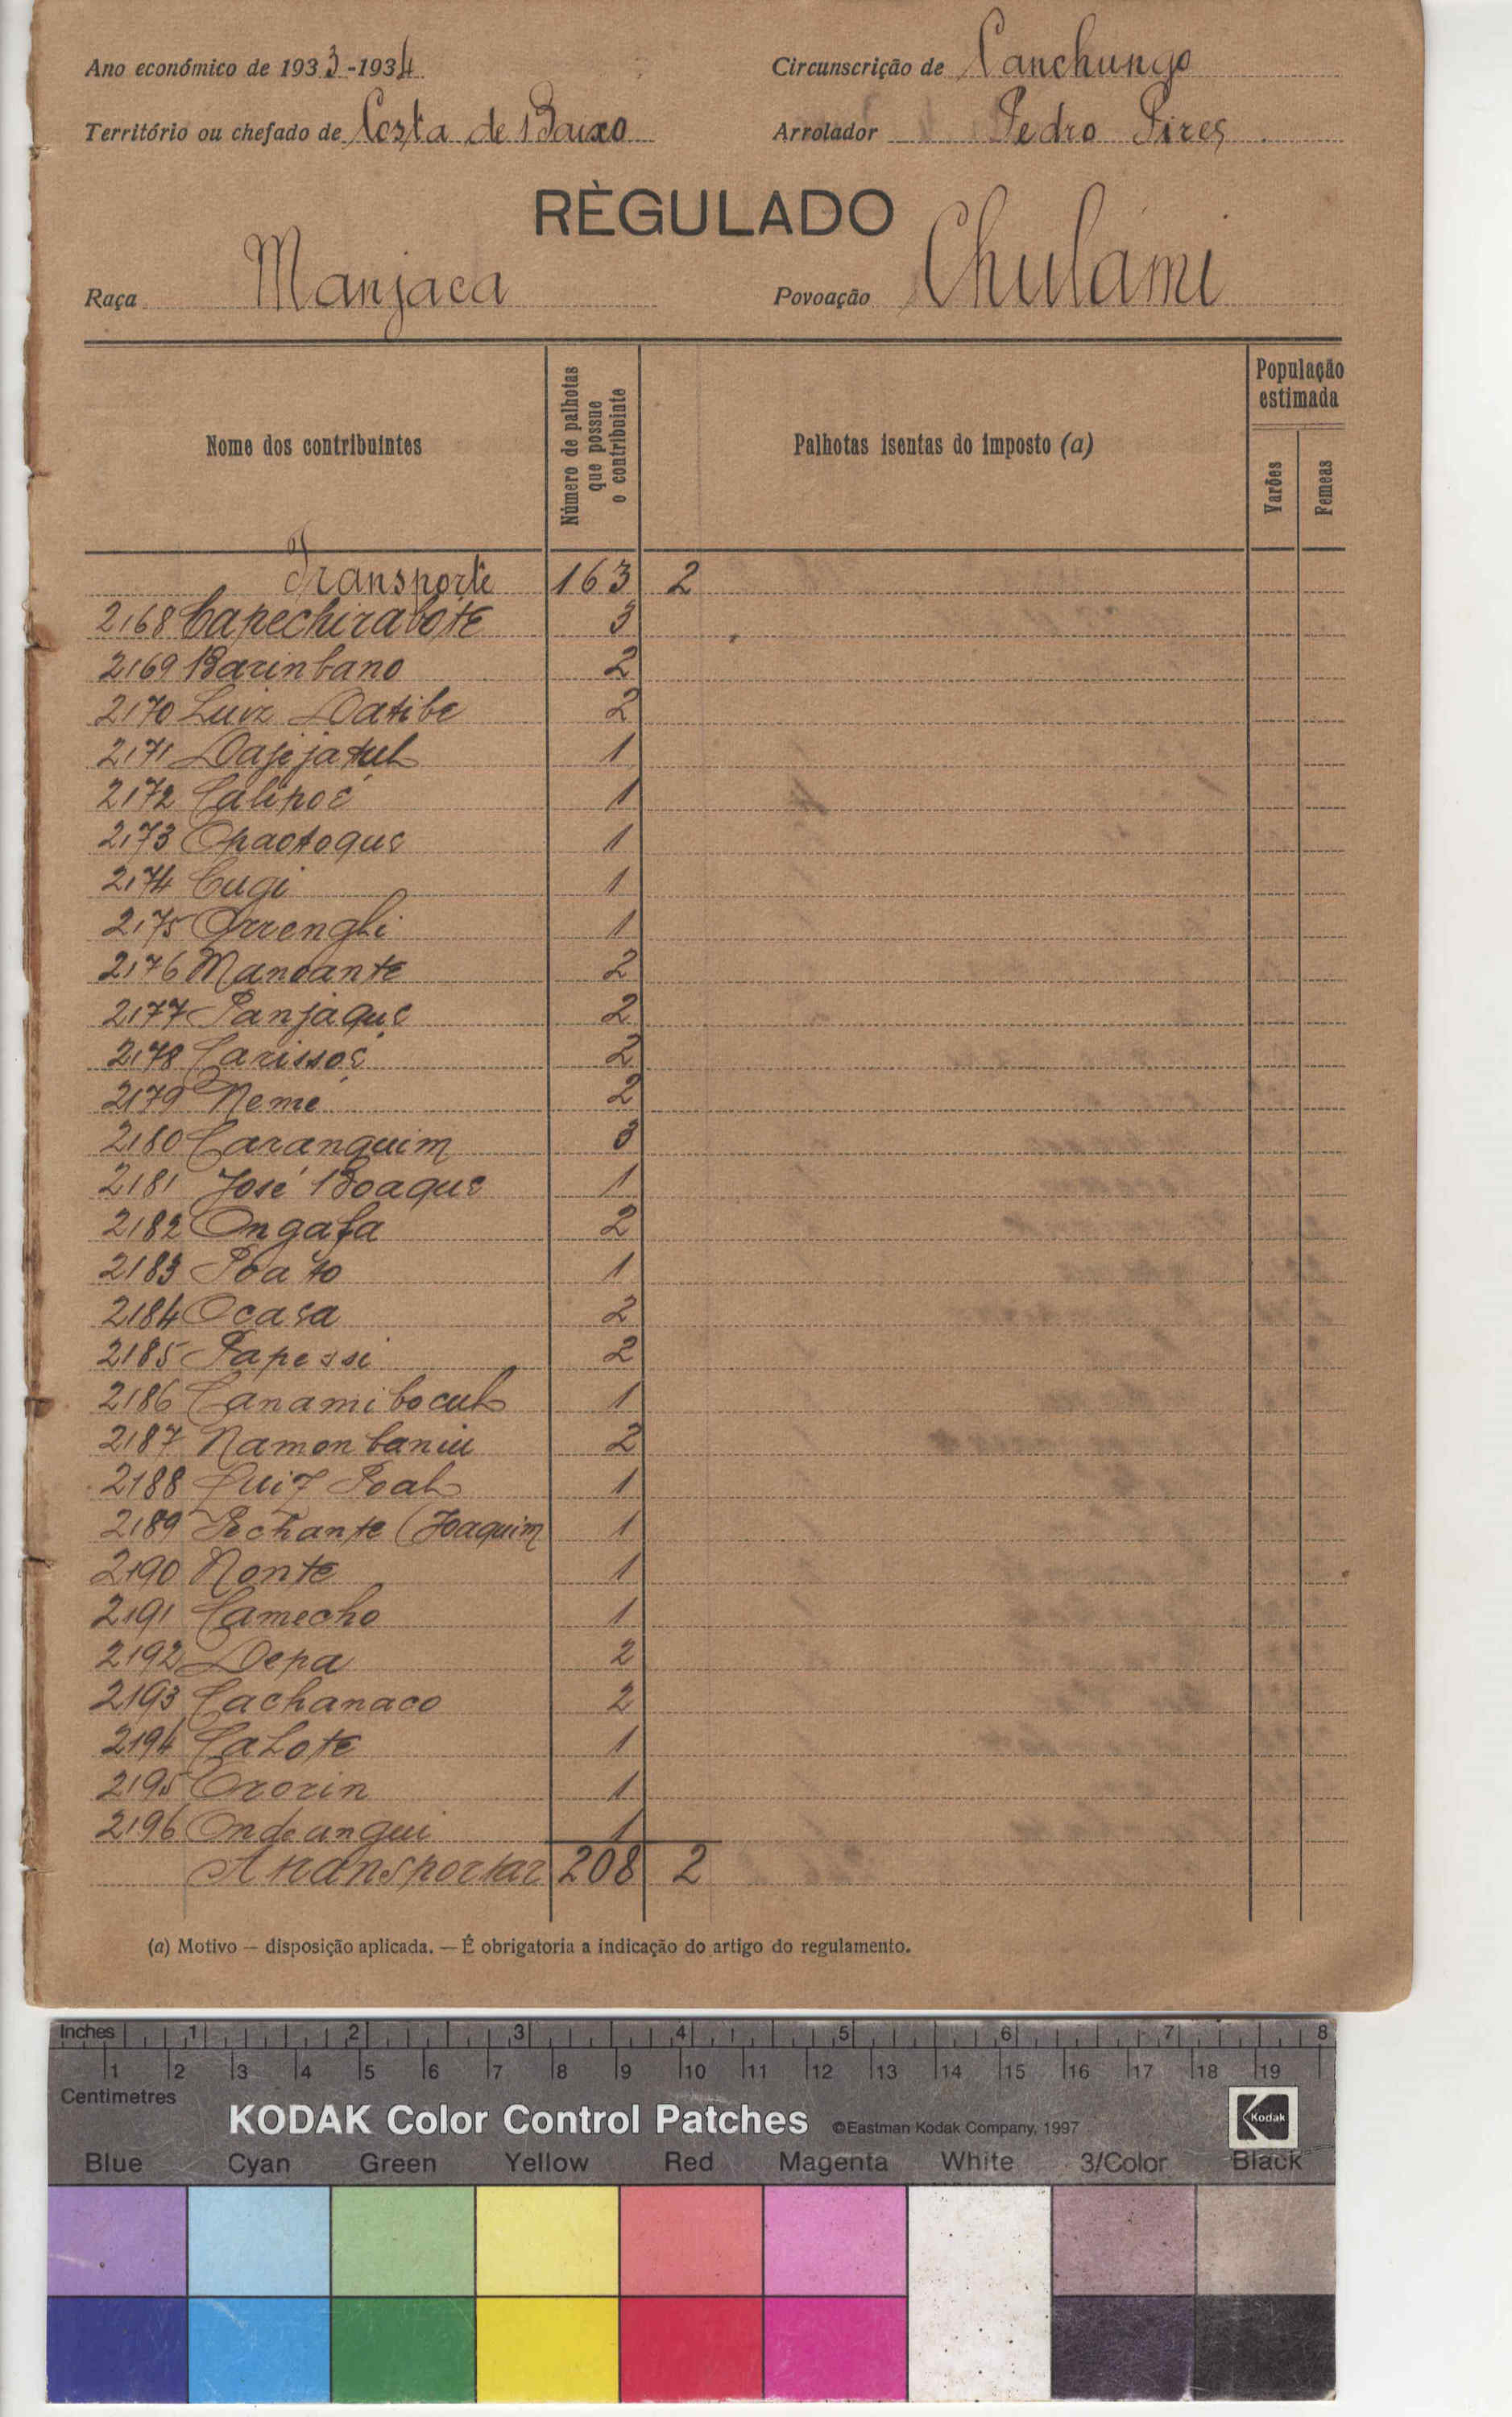 Ano económico de 1933-1934 Circunscrição de Canchungo
Território ou chefado de Costa de Baixo Arrolador Pedro Pires
RÈGULADO
Raça Manjaca Povoação Chulámi
Nome dos contribuintes
Número de palhotas que possue o contribuinte
Palhotas isentas do imposto (a)
População estimada
Varões
Femeas
Transporte 163 2
2168 Capechirabote 3
2169 Barinbano 2
2170 Luiz Datibe 2
2171 Dajejatul 1
2172 Calipoé 1
2173 Opaotoque 1
2174 Cugi 1
2175 Orrengli 1
2176 Manoante 2
2177 Panjaque 2
2178 Carissoé 2
2179 Nemé 2
2180 Caranquim 3
2181 José Boaque 1
2182 Ongafa 2
2183 Poato 1
2184 Ocasa 2
2185 Papessi 2
2186 Canamibocul 1
2187 Namonbaniu 2
2188 Luiz Poal 1
2189 Pechante (Joaquim 1
2190 Nonte 1
2191 Camecho 1
2192 Depa 2
2193 Cachanaco 2
2194 Calote 1
2195 Ororin 1
2196 Ondeangui 1
A transportar 208 2
(a) Motivo — disposição aplicada. — É obrigatoria a indicação do artigo do regulamento.
Inches 1 2 3 4 5 6 7 8
1 2 3 4 5 6 7 8 9 10 11 12 13 14 15 16 17 18 19
Centimetres
KODAK Color Control Patches ©Eastman Kodak Company, 1997 Kodak
Blue Cyan Green Yellow Red Magenta White 3/Color Black